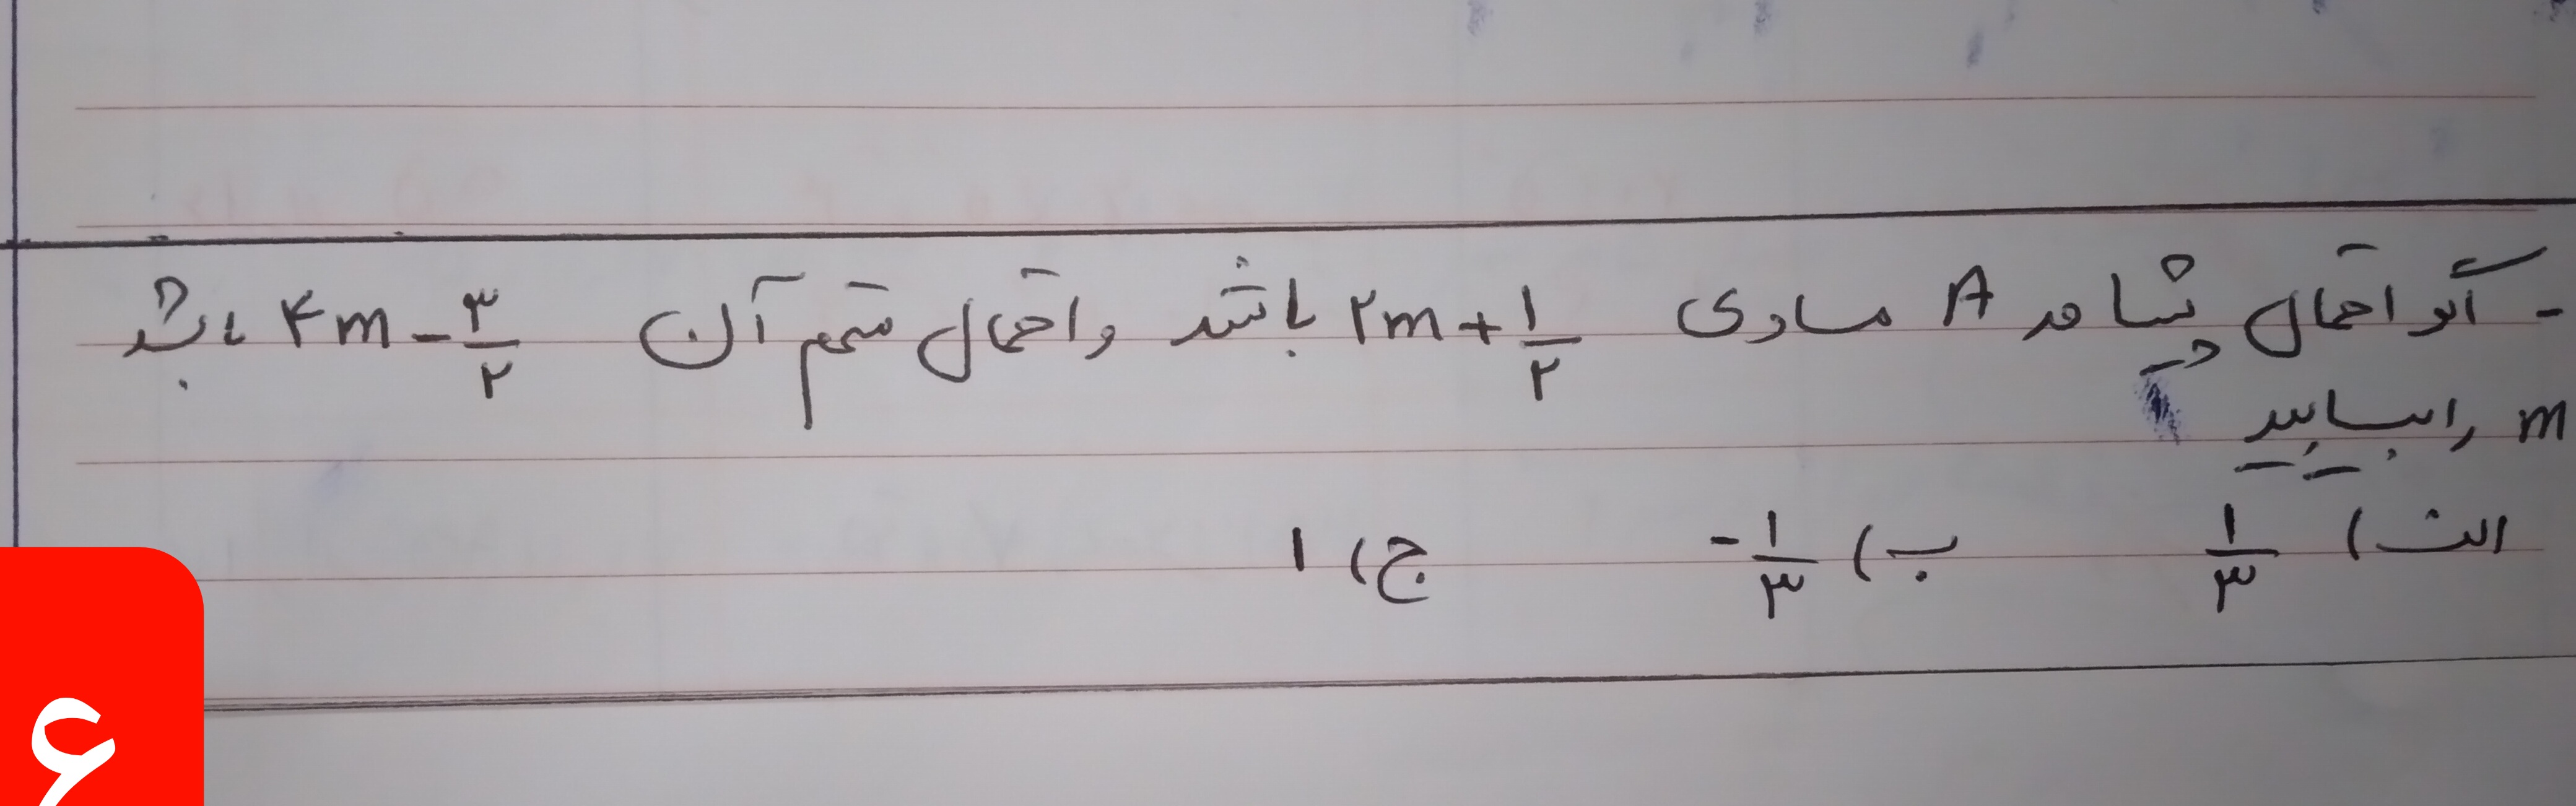 - اگر احتمال پیشامد A مساوی ۲m + ۱/۲ باشد و احتمال متمم آن ۴m - ۳/۲ باشد
m را بیابید
الف) ۱/۳ ب) -۱/۳ ج) ۱
۶